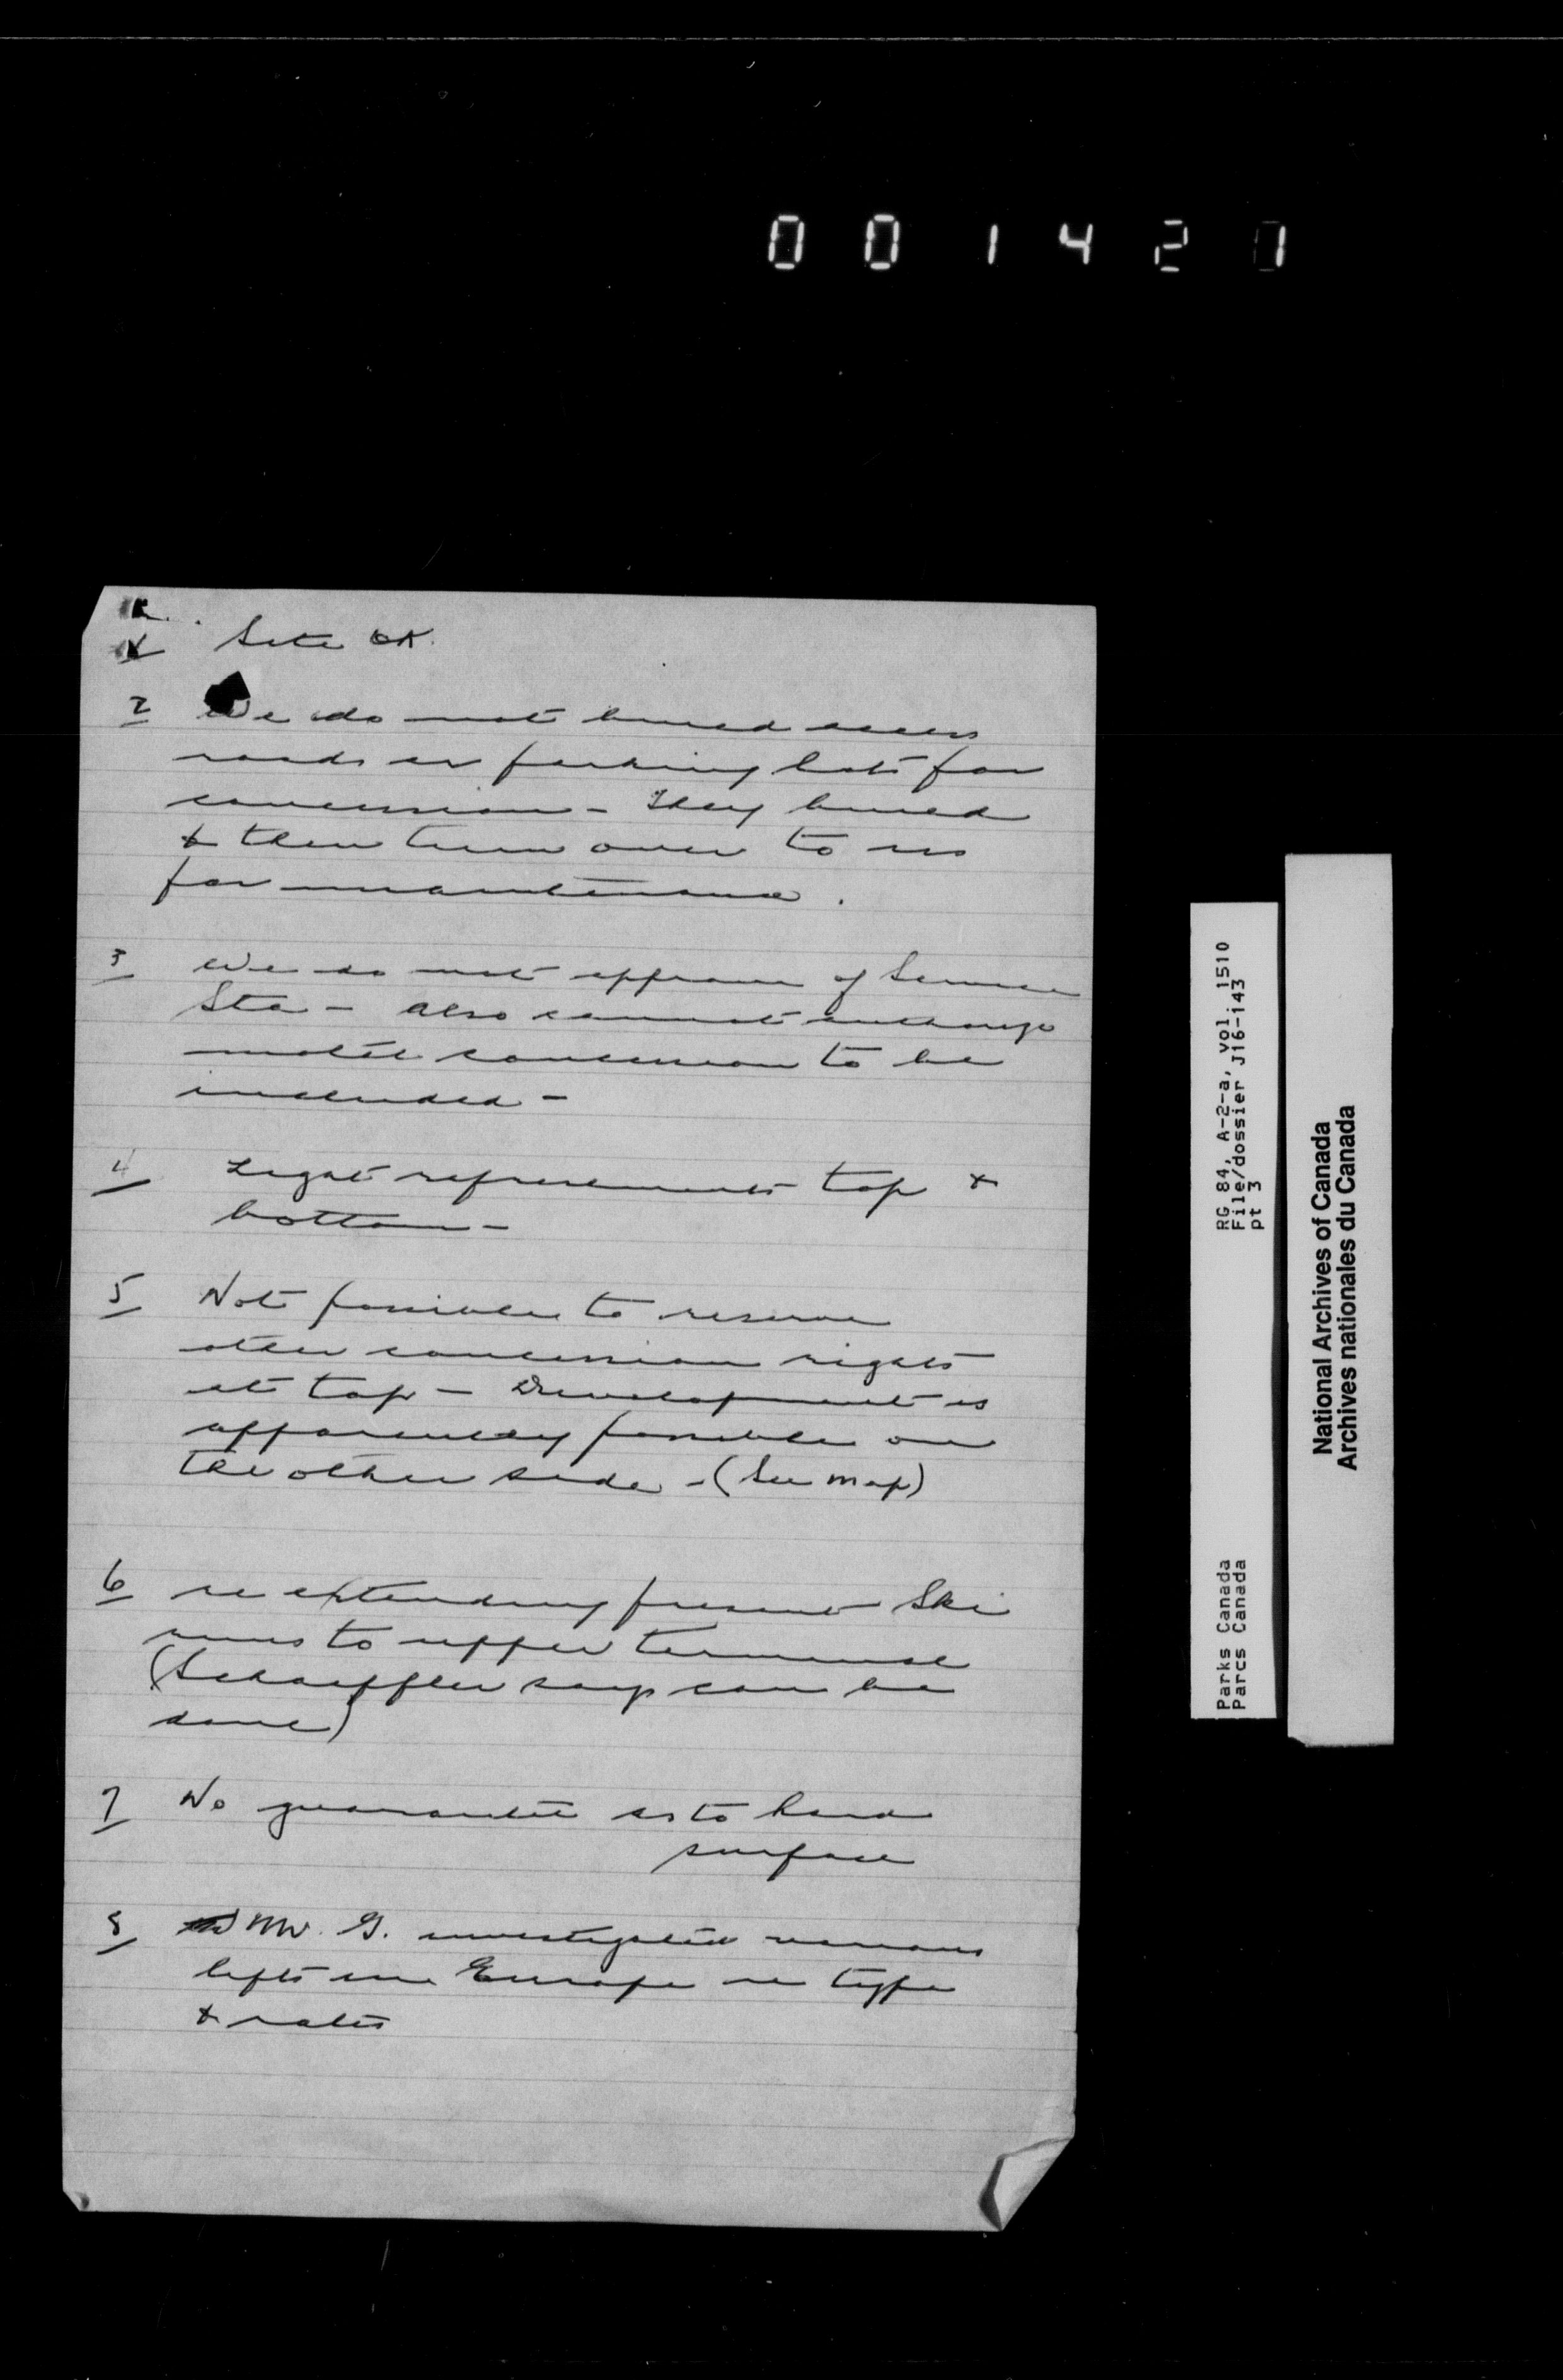 001421
1 Site OK.
2 We do not build access
roads or parking lots for
concession - They build
& then turn over to us
for maintenance.
3 We do not approve of Service
Sta - Also cannot authorize
motel concession to be
included -
4 Light refreshments top &
bottom -
5 Not possible to reserve
other concession rights
at top - Development is
apparently possible on
the other side - (See map)
6 re extending present Ski
runs to upper terminal
(Schaeffler says can be
done)
7 No guarantee as to hard
surface
8 Mr. G. investigated various
lifts in Europe re type
& rates
Parks Canada RG 84, A-2-a, vol. 1510
Parcs Canada File/dossier J16-143
pt 3
National Archives of Canada
Archives nationales du Canada